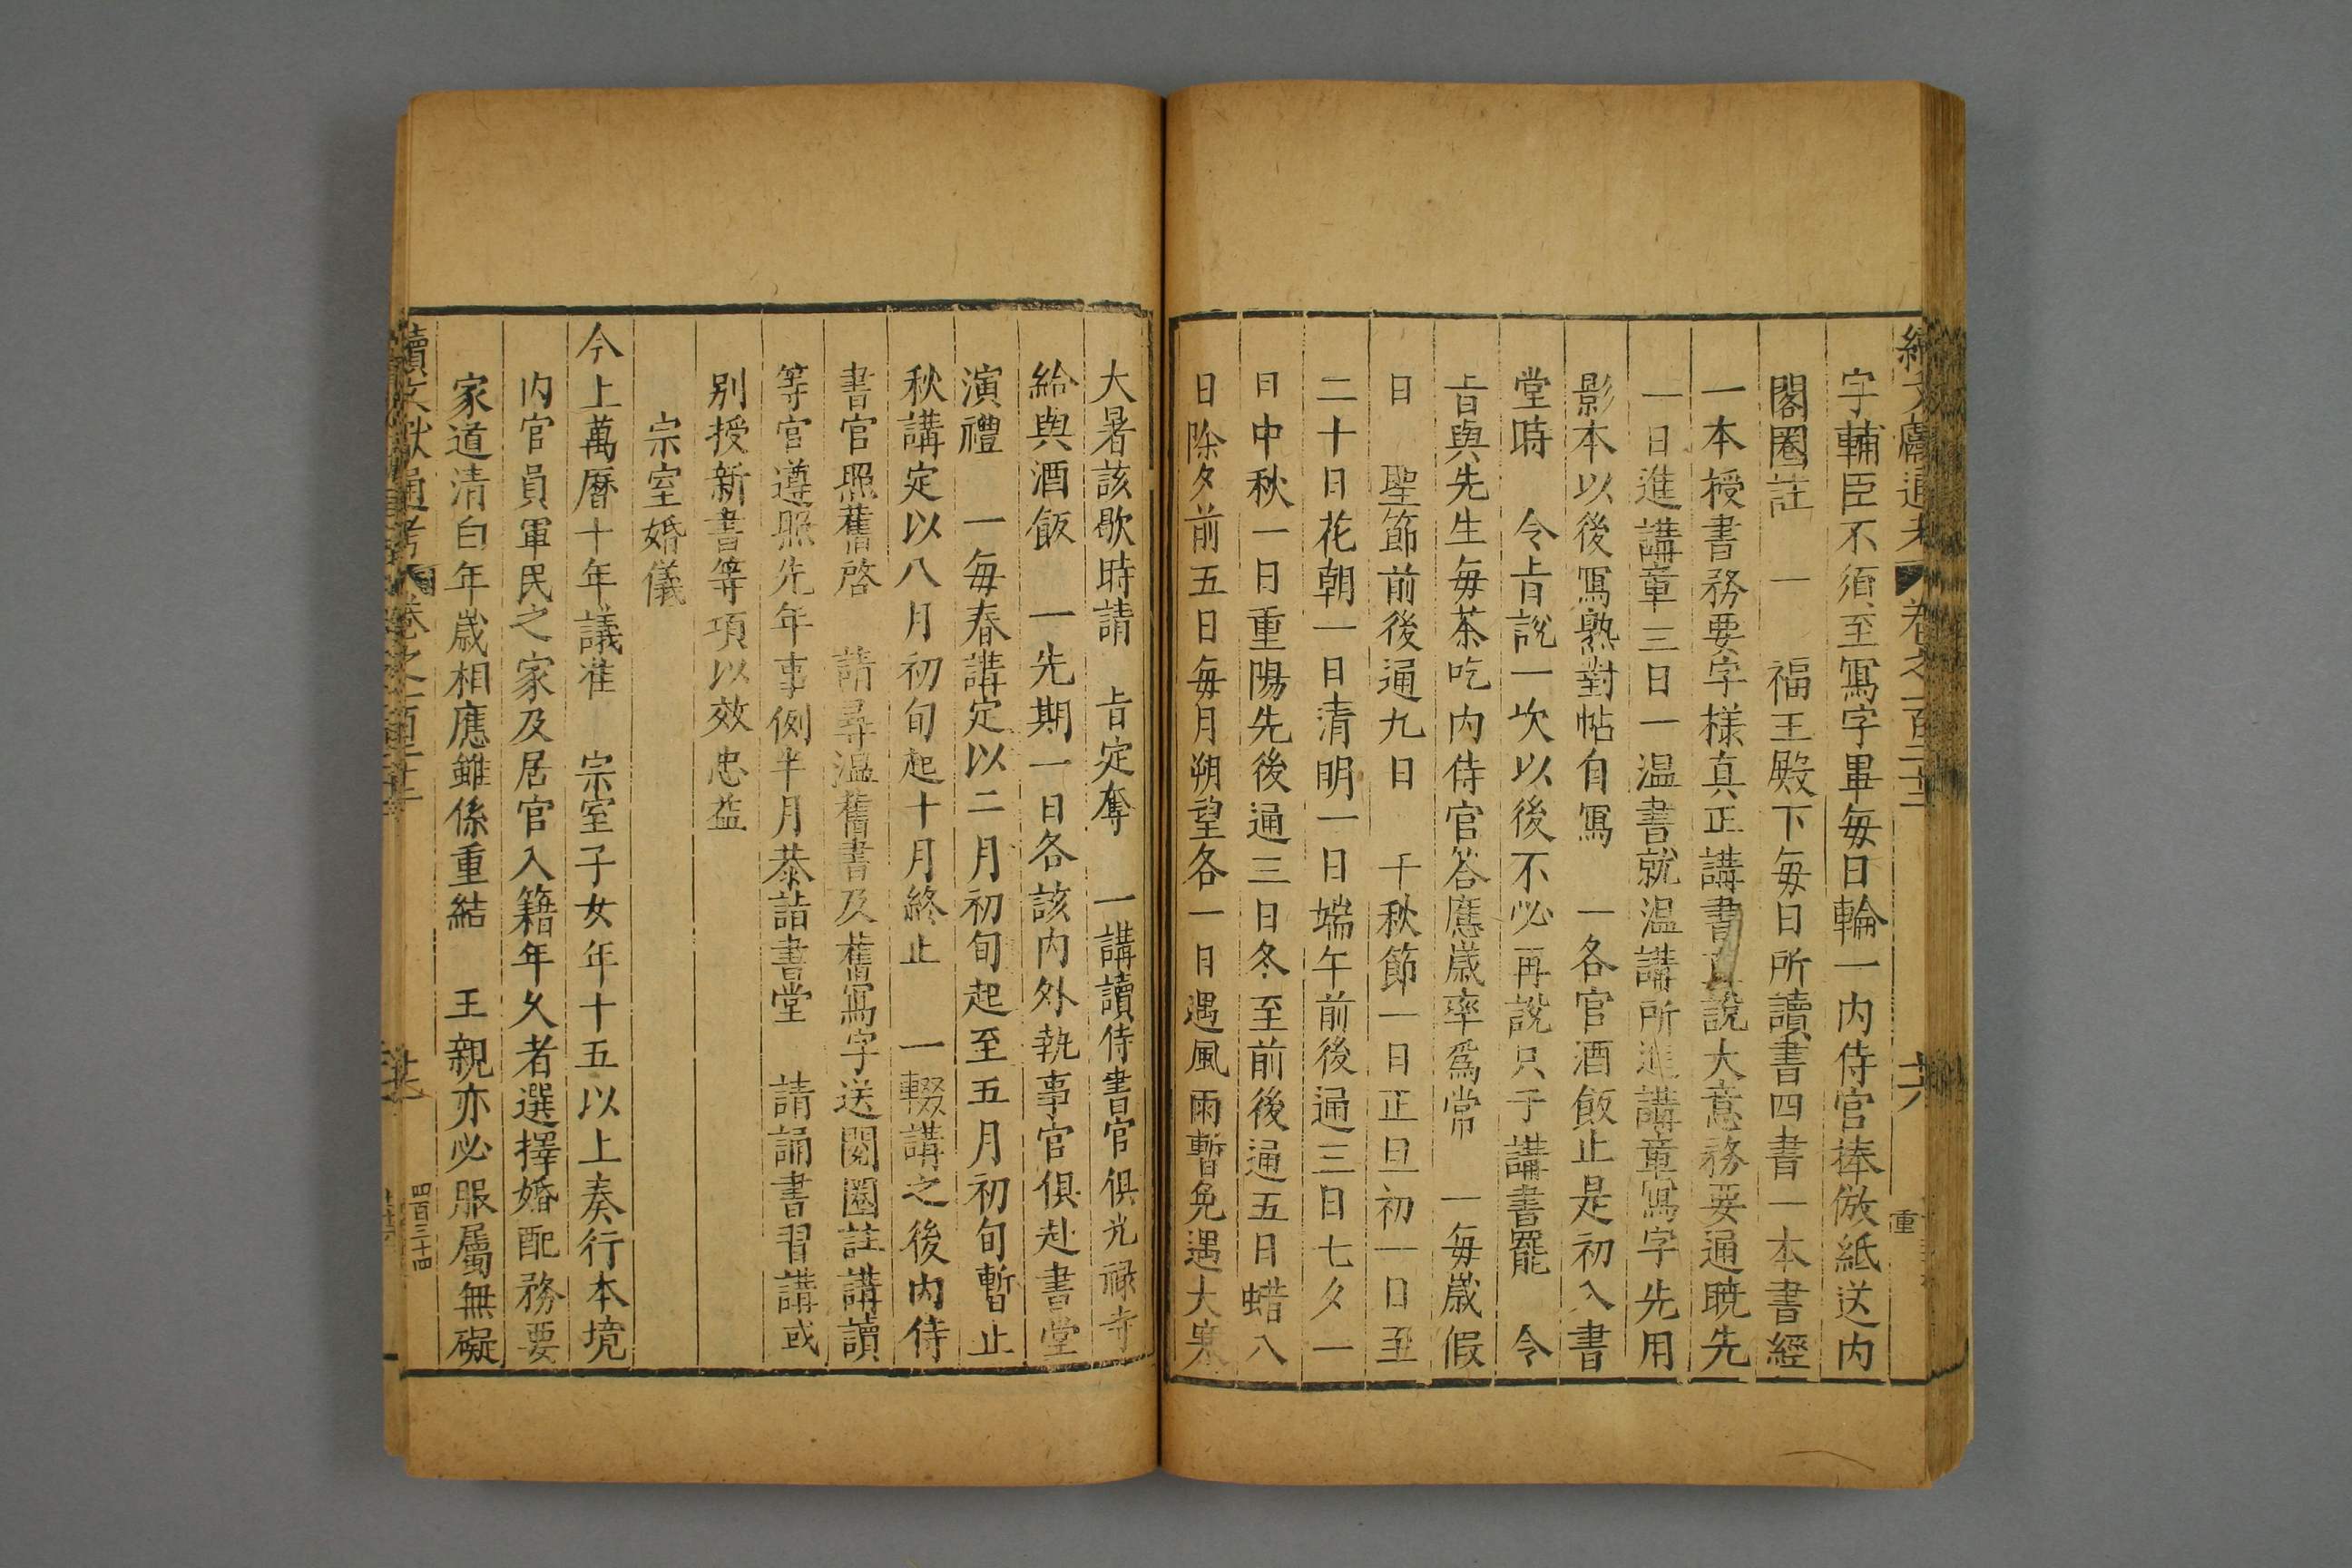 續文獻通考 卷之一百二十三 十六 重
字輔臣不須至寫字畢每日輪一內侍官捧倣紙送內
閣圈註　一　福王殿下每日所讀書四書一本書經
一本授書務要字樣真正講書直說大意務要通曉先
一日進講章三日一溫書就溫講所進講章寫字先用
影本以後寫熟對帖自寫　一各官酒飯止是初入書
堂時　令旨說一次以後不必再說只于講書罷　令
旨與先生每茶吃內侍官答應歲率爲常　一每歲假
日　聖節前後通九日　千秋節一日正旦初一日至
二十日花朝一日清明一日端午前後通三日七夕一
日中秋一日重陽先後通三日冬至前後通五日蜡八
日除夕前五日每月朔望各一日遇風雨暫免遇大寒
大暑該歇時請　旨定奪　一講讀侍書官俱光祿寺
給與酒飯　一先期一日各該內外執事官俱赴書堂
演禮　一每春講定以二月初旬起至五月初旬暫止
秋講定以八月初旬起十月終止　一輟講之後內侍
書官照舊啓　請尋溫舊書及舊寫字送閱圈註講讀
等官遵照先年事例半月恭詣書堂　請誦書習講或
別授新書等項以效忠益
宗室婚儀
今上萬曆十年議准　宗室子女年十五以上奏行本境
內官員軍民之家及居官入籍年久者選擇婚配務要
家道清白年歲相應雖係重結　王親亦必服屬無礙
續文獻通考 卷之一百二十三 十七 四百三十四